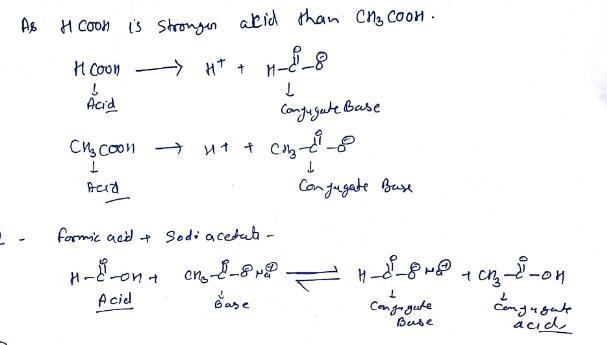 As HCOOH is stronger acid than CH3COOH.
HCOOH → H+ + H-C(=O)-O⊖
↓ ↓
Acid Conjugate Base
CH3COOH → H+ + CH3-C(=O)-O⊖
↓ ↓
Acid Conjugate Base
- formic acid + Sodi acetate -
H-C(=O)-OH + CH3-C(=O)-O⊖ Na⊕ ⇌ H-C(=O)-O⊖ Na⊕ + CH3-C(=O)-OH
Acid ↓ Base ↓ Conjugate Base ↓ Conjugate acid